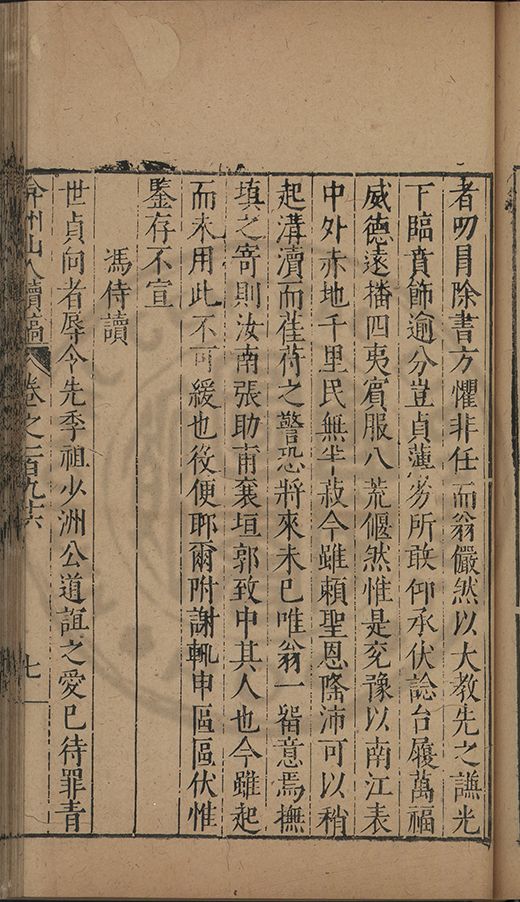 者叨冐除書方懼非任而翁儼然以大教先之謙光
下臨賁飾逾分豈貞薄劣所敢仰承伏諗台履萬福
威德遠播四夷賓服八荒偃然惟是兖豫以南江表
中外赤地千里民無半菽今雖賴聖恩隆沛可以稍
起溝瀆而萑苻之警恐將來未已唯翁一留意焉撫
填之寄則汝南張助甫襄垣郭致中其人也今雖起
而未用此不可緩也役便耶爾附謝輒申區區伏惟
鑒存不宣
馮侍讀
世貞向者辱令先季祖少洲公道誼之愛巳待罪青
弇州山人續稿 卷之一百九十六 七